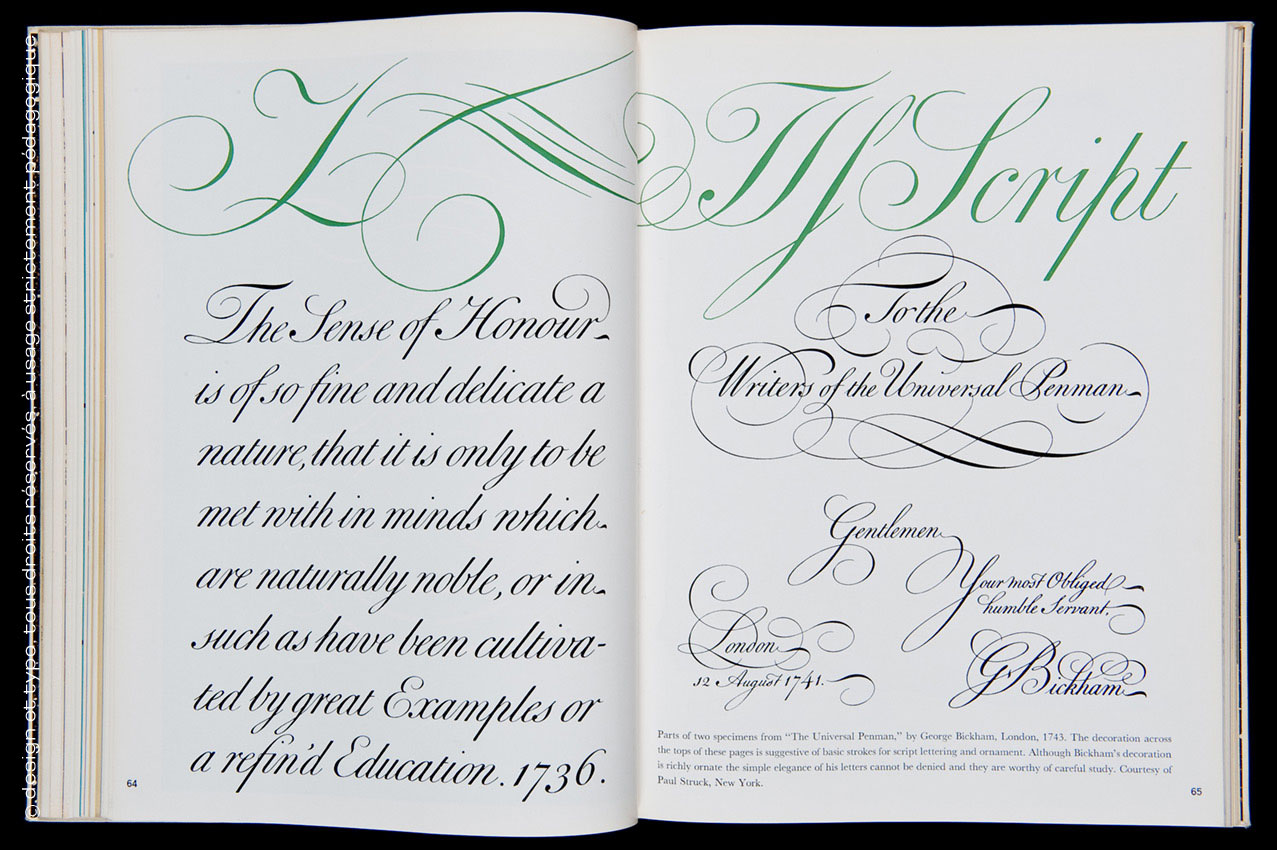 The Sense of Honour
is of so fine and delicate a
nature, that it is only to be
met with in minds which
are naturally noble, or in
such as have been cultiva-
ted by great Examples or
a refin'd Education. 1736.
64
Script
To the
Writers of the Universal Penman
Gentlemen
Your most Obliged
humble Servant.
London
12 August 1741.
G. Bickham
Parts of two specimens from “The Universal Penman,” by George Bickham, London, 1743. The decoration across
the tops of these pages is suggestive of basic strokes for script lettering and ornament. Although Bickham’s decoration
is richly ornate the simple elegance of his letters cannot be denied and they are worthy of careful study. Courtesy of
Paul Struck, New York.
65
© design et typo, tous droits réservés, à usage strictement pédagogique